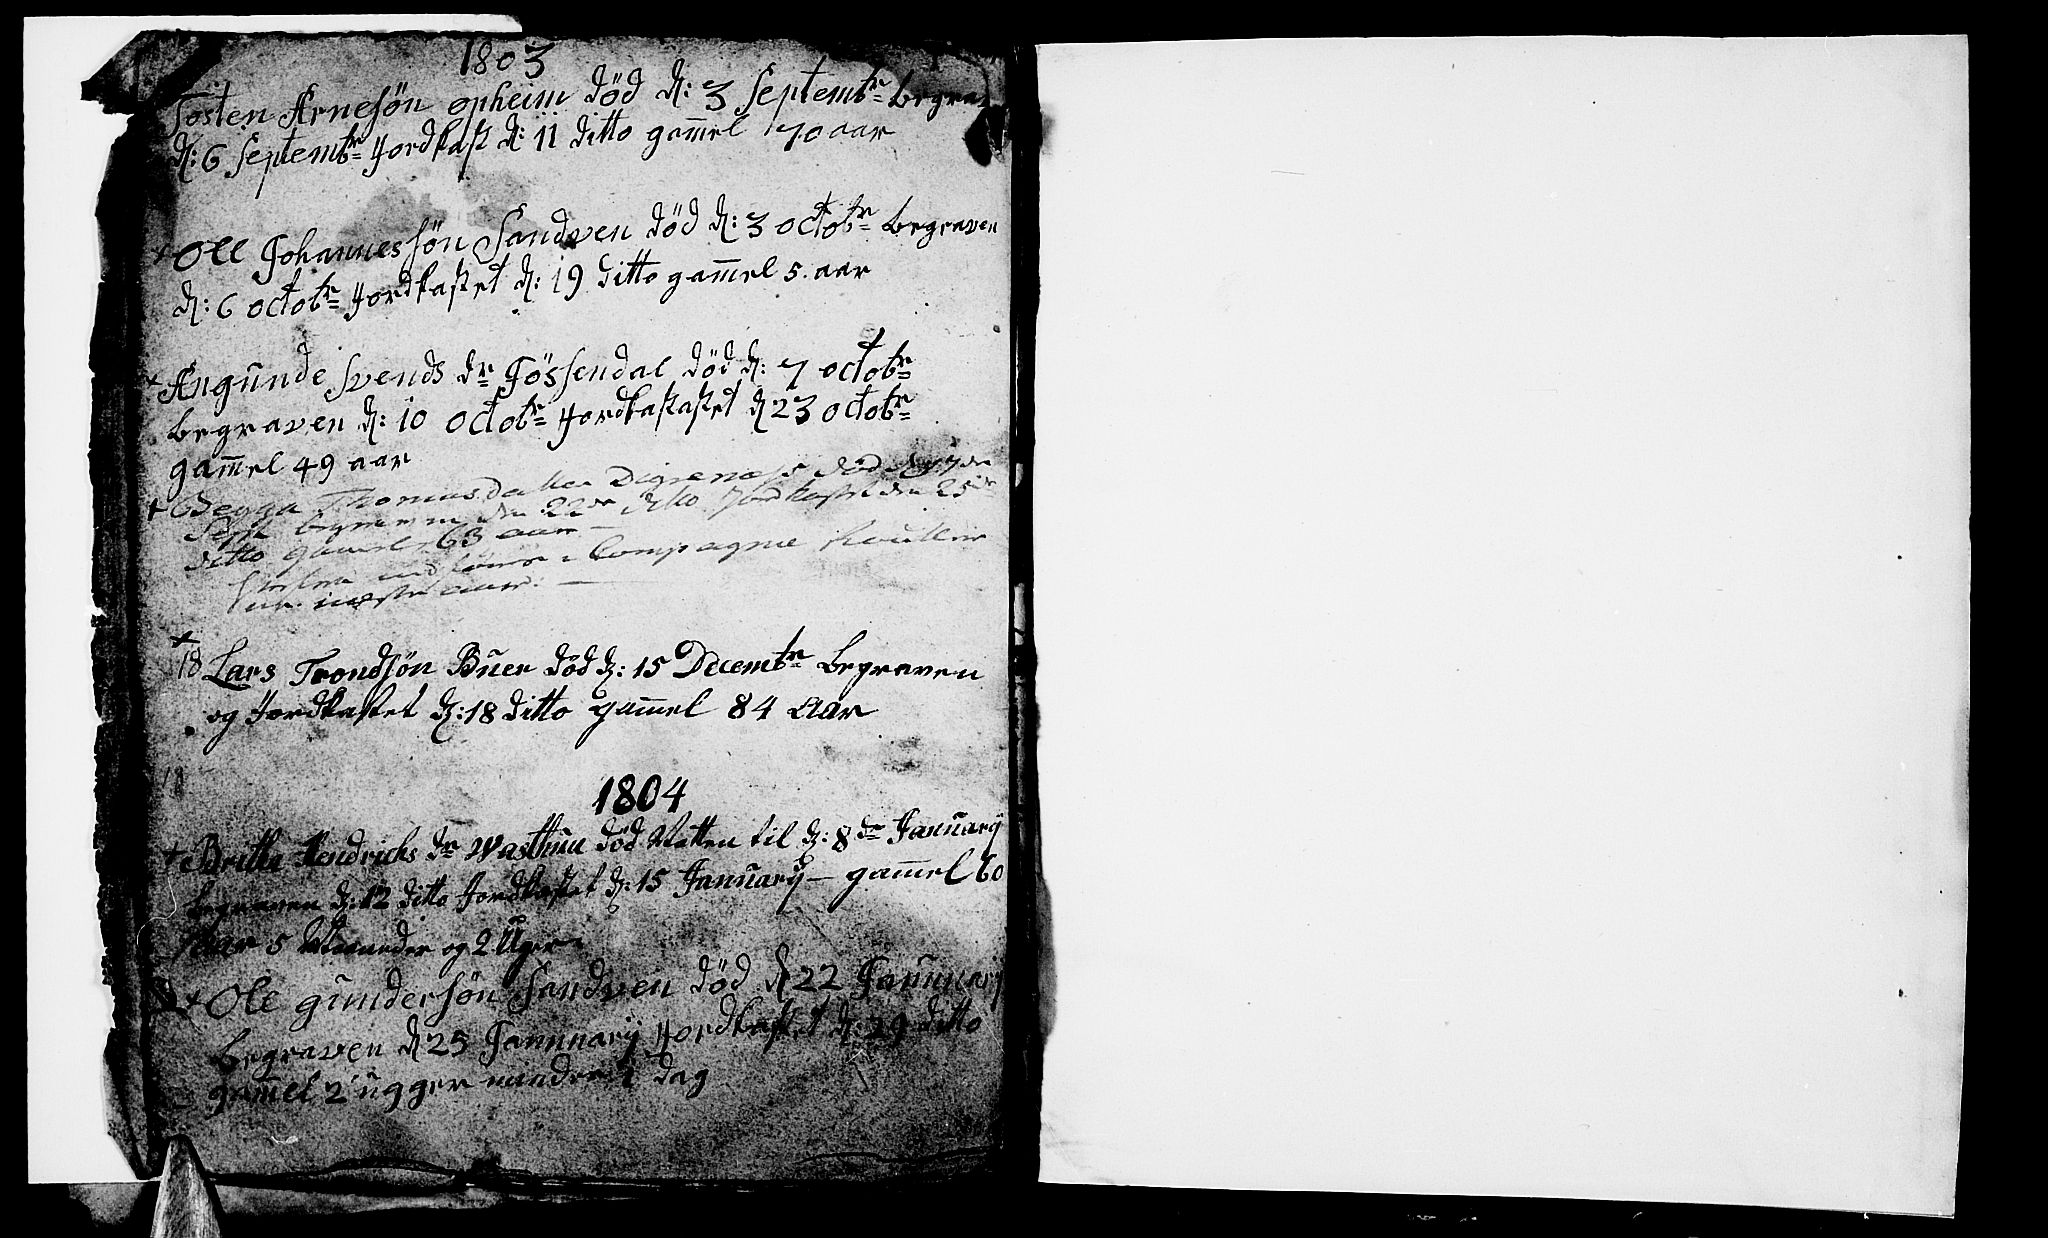 1803
Tosten Arnesøn opheim død d: 3 Septembr begrav
d: 6 Septembr Jordkast d: 11 ditto gam̄el 70 aar
+ Ole Johannessøn Sandven død d: 3 octobr begraven
d: 6 octobr Jordkastet d: 19 ditto gam̄el 5 aar
+ Angunde Svends dr Jössendal død d: 7 octobr
begraven d: 10 octobr Jordkastastet d 23 octobr
gam̄el 49 aar
+ Begga Thomasdatter Digrenæss død d 17de
Sept begraven den 22de ditto Jordkast den 25de
ditto gamel 63 aar
indføres Compagnie
næste aar.
+
18 Lars Trondsøn Buer død d: 15 Decembr begraven
og Jordkastet d: 18 ditto gam̄el 84 Aar
18
1804
+ Britha Hendrichs dr død Natten til d: 8de Januarij
begraven d: 12 ditto Jordkastet d: 15 Januarij – gam̄el 60
Aar 5 Maaneder og 2 Uger
+ Ole gundersøn Sandven død d 22 Jannuarij
begraven d 25 Jannuarij Jordkastet d: 29 ditto
gam̄el 2 ugger mindre 1 dag